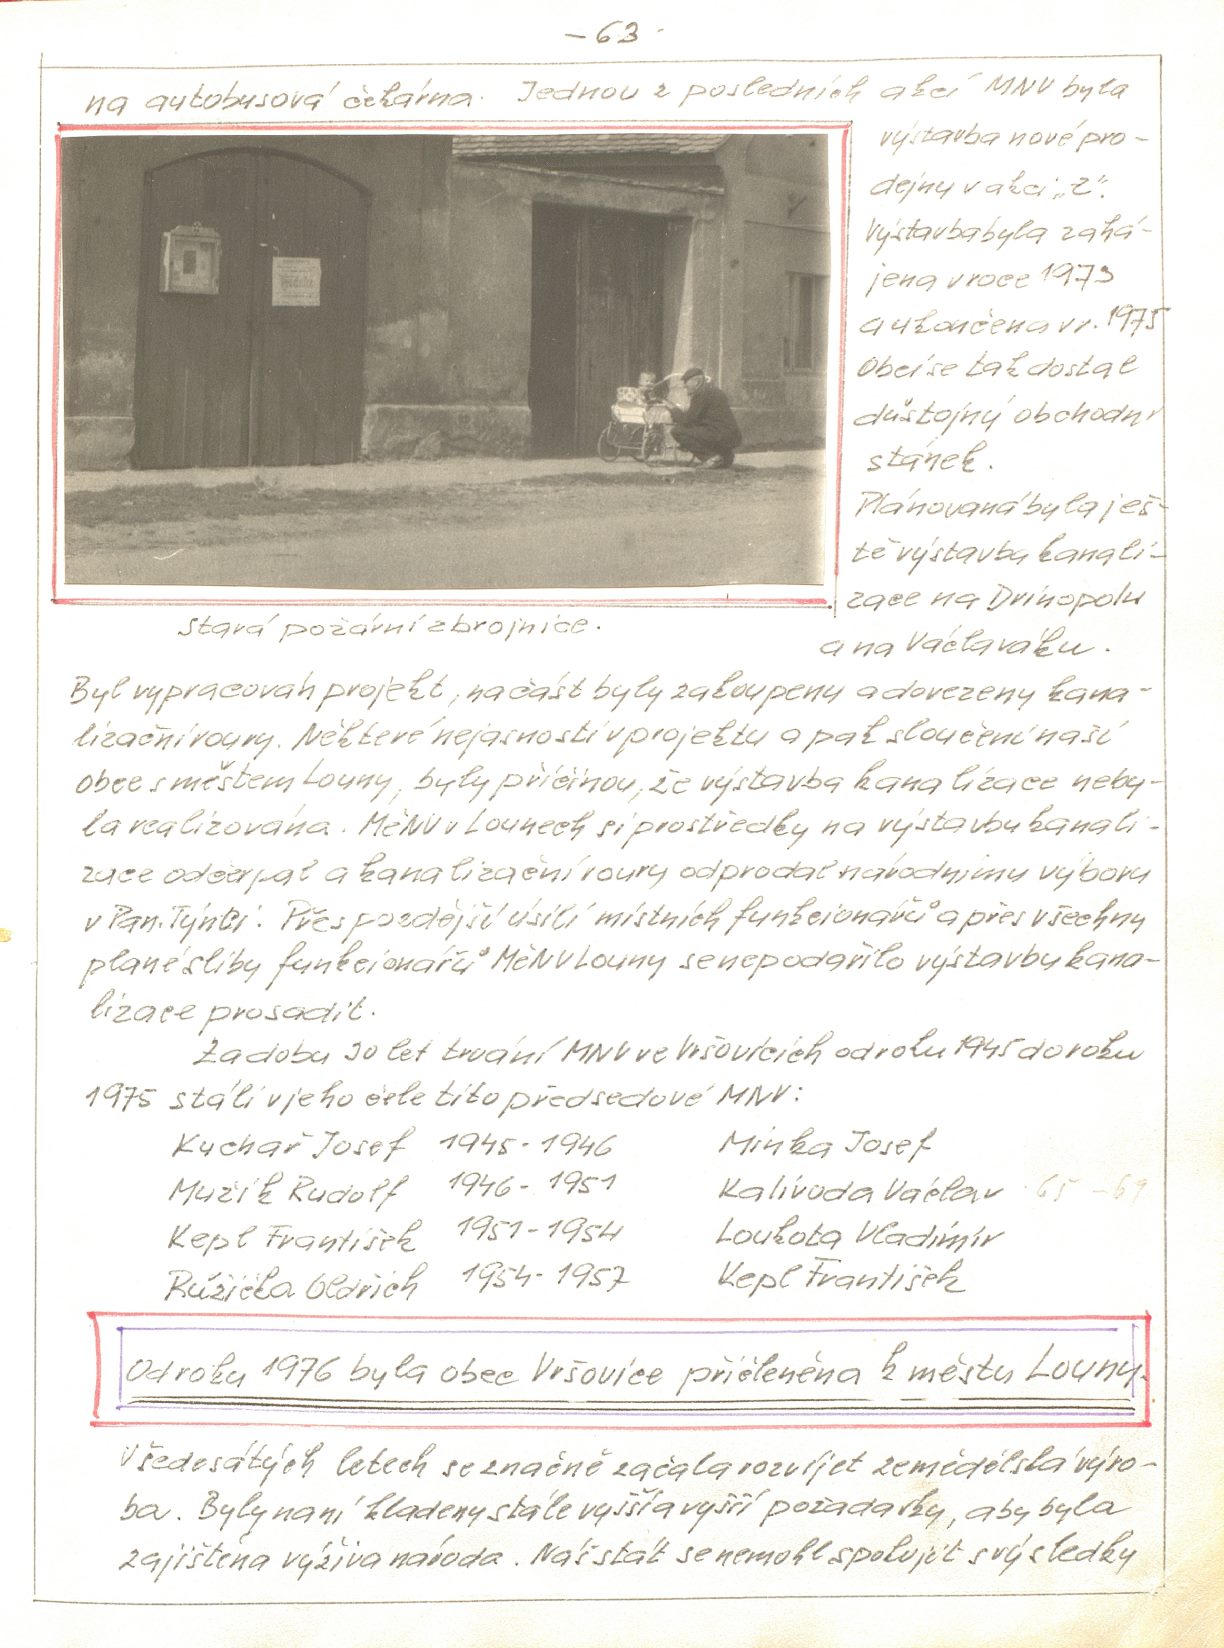 - 63 -
na autobusová čekárna. Jednou z posledních akcí MNV byla
výstavba nové pro-
dejny v akci „Z".
Výstavba byla zahá-
jena v roce 1973
a ukončena v r. 1975
Obci se tak dostal
důstojný obchodní
stánek.
Plánovaná byla ješ-
tě výstavba kanali-
zace na Drinopolu
a na Václaváku.
Stará požární zbrojnice.
Byl vypracován projekt, načást byly zakoupeny a dovezeny kana-
lizační roury. Některé nejasnosti v projektu a pak sloučení naší
obce s městem Louny, byly příčinou, že výstavba kanalizace neby-
la realizována. MěNV v Lounech si prostředky na výstavbu kanali-
zace odčerpal a kanalizační roury odprodal národnímu výboru
v Pan. Týnci. Přes pozdější úsilí místních funkcionářů a přes všechny
plané sliby funkcionářů MěNV Louny se nepodařilo výstavbu kana-
lizace prosadit.
Za dobu 30 let trvání MNV ve Vršovicích od roku 1945 do roku
1975 stáli v jeho čele tito předsedové MNV:
Kuchař Josef 1945 - 1946 Minka Josef
Mužík Rudolf 1946 - 1951 Kalivoda Václav 65 - 69
Kepl František 1951 - 1954 Loukota Vladimír
Růžička Oldřich 1954 - 1957 Kepl František
Od roku 1976 byla obec Vršovice přičleněna k městu Louny.
V šedesátých letech se značně začala rozvíjet zemědělská výro-
ba. Byly na ní kladeny stále vyšší a vyšší požadavky, aby byla
zajištěna výživa národa. Náš stát se nemohl spokojit s výsledky